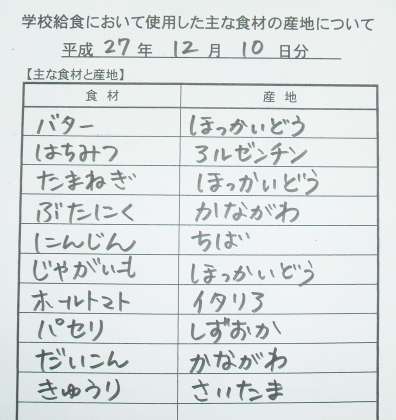 学校給食において使用した主な食材の産地について
平成 27 年 12 月 10 日分
【主な食材と産地】
食材 産地
バター ほっかいどう
はちみつ アルゼンチン
たまねぎ ほっかいどう
ぶたにく かながわ
にんじん ちば
じゃがいも ほっかいどう
ホールトマト イタリア
パセリ しずおか
だいこん かながわ
きゅうり さいたま